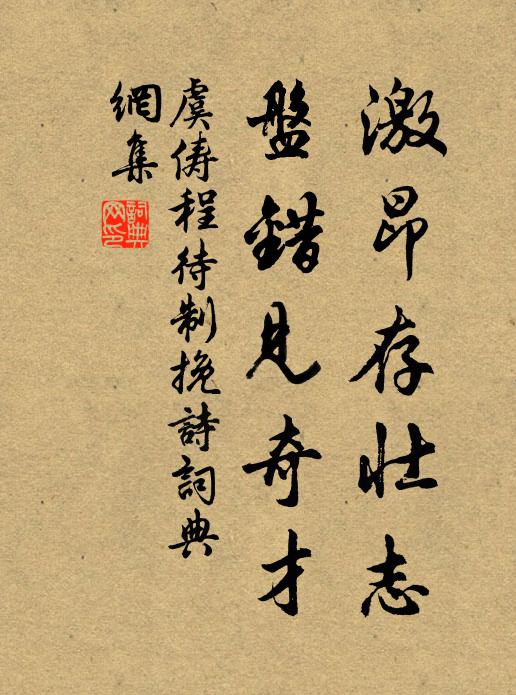 激昂存壮志
盤錯見奇才
虞儔程待制挽詩詞典
網集
詞典
网印